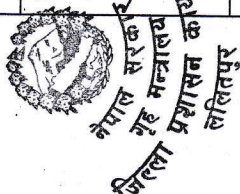 नेपाल सरकार
गृह मन्त्रालय
जिल्ला प्रशासन
ललितपुर